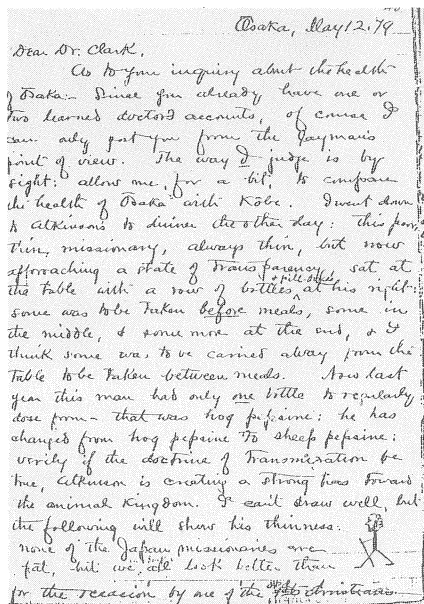 Osaka, May 12. 79
Dear Dr. Clark.
As to your inquiry about the health
of Osaka:- Since you already have one or
two learned doctor's accounts, of course I
can only post you from the layman's
point of view. The way I judge is by
sight: allow me, for a bit, to compare
the health of Osaka with Kobe. I went down
to Atkinson's to dinner the other day: this poor,
thin, missionary, always thin, but now
approaching a state of transparency sat at
& pill boxes
the table with a row of bottles at his right:
some was to be taken before meals, some in
the middle, & some more at the end, & I
think some was to be carried away from the
table to be taken between meals. Now last
year this man had only one bottle to regularly
dose from - that was hog pepsine: he has
changed from hog pepsine to sheep pepsine:
verily if the doctrine of transmigration be
true, Atkinson is creating a strong bias toward
the animal Kingdom. I can't draw well, but
the following will show his thinness:
none of the Japan missionaries are
fat, but we all look better than
for the occasion by one of the Christians